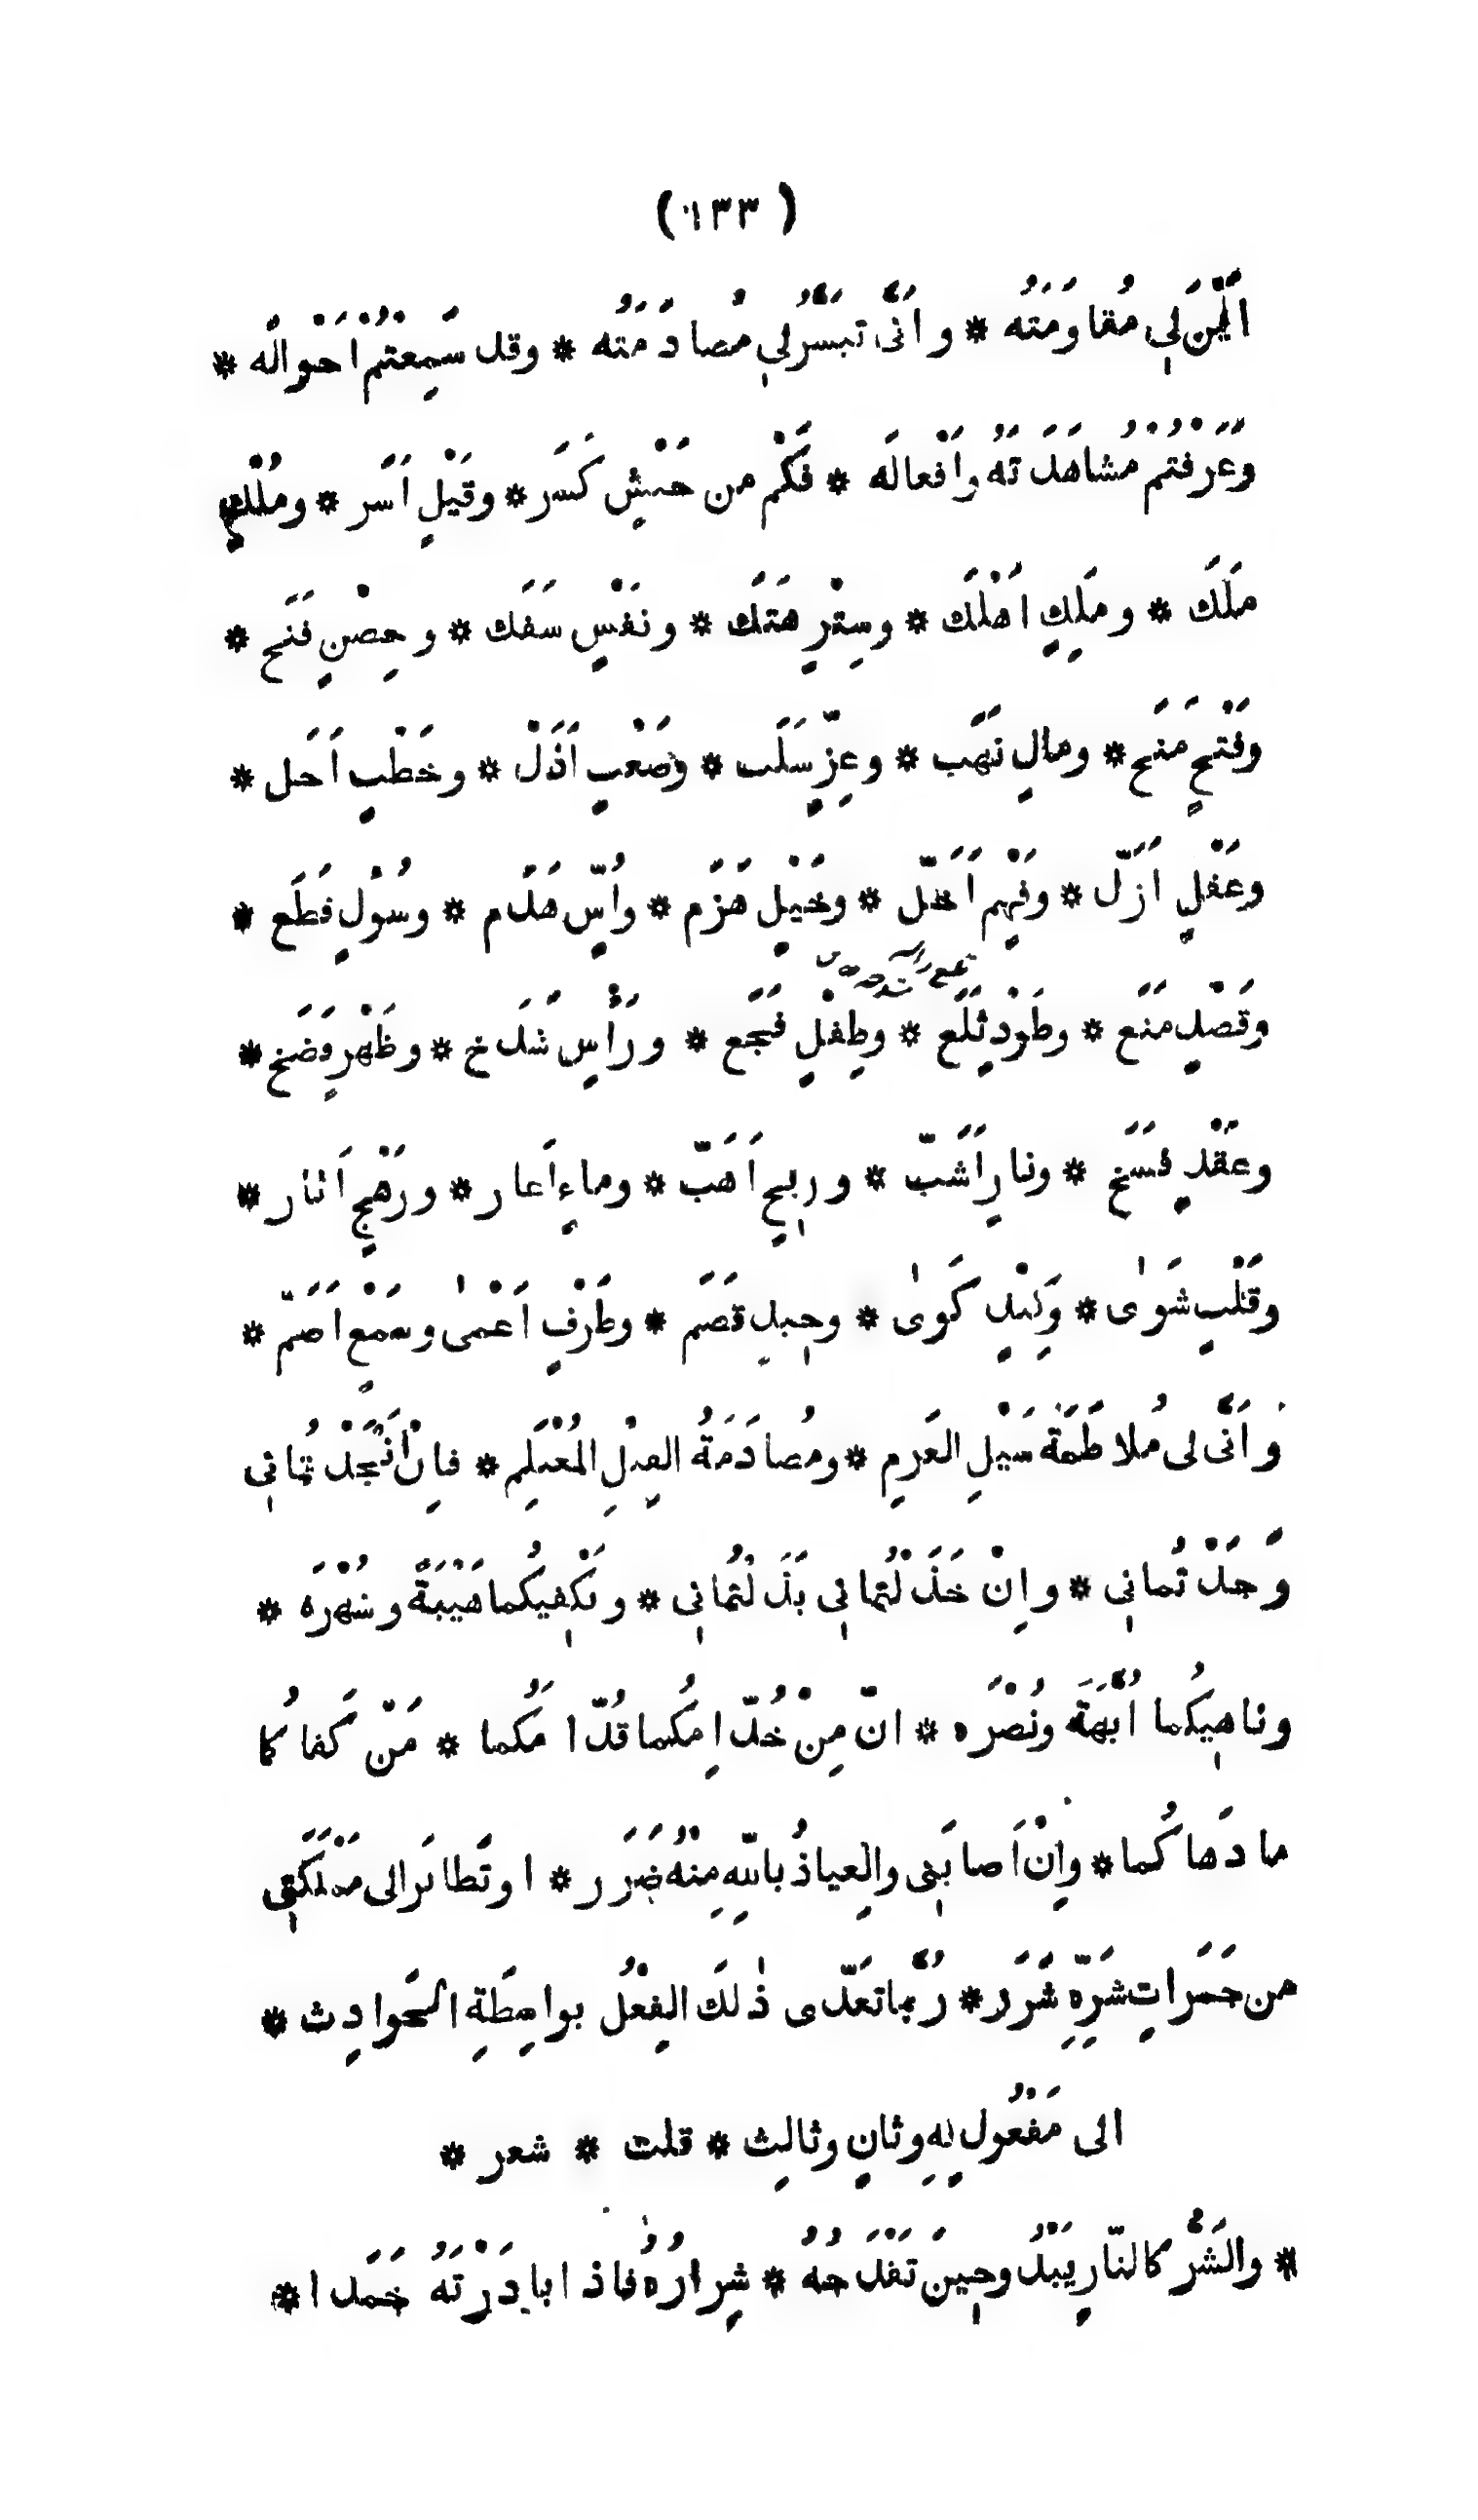 ( ١٣٣ )
اَيْنَ لِي مُقاوَمَتُه * واَنَّى تَيَسَّرُ لِي مُصادَمَتُه * وقد سَمِعْتُمْ اَحْوالَه *
وعَرَفْتُم مُشاهَدَتَهُ واَفْعالَه * فَكَمْ من جَيْشٍ كَسَر * وقَيْلٍ اَسَر * ومُلْكٍ
مَلَكَ * ومَلِكٍ اَهْلَكَ * وسِتْرٍ هتك * ونَفْسٍ سَفَك * وحِصْنٍ فَتَح *
وفَتْحٍ مَنَح * ومالٍ نَهَب * وعِزٍّ سَلَب * وصَعْبٍ اَذَلّ * وخَطْبٍ اَحل *
وعَقْلٍ اَزَلّ * وفَهْمٍ اَضَلّ * وخَيْلٍ هَزَم * واُسٍّ هَدَم * وسُؤْلٍ قَطَع *
وقَصْدٍ مَنَع * وطَوْدٍ قَلَع * وطِفْلٍ فَجَع * ورَأْسٍ شَدَخ * وظَهْرٍ فَضَخ *
وعَقْدٍ فَسَخ * ونارٍ اَشَبّ * وريحٍ اَهَبّ * وماءٍ اَغار * ورَهْجٍ اَثار *
وقَلْبٍ شَوٰى * وكَبِدٍ كَوٰى * وجيدٍ قَصَم * وطَرْفٍ اَعْمٰى وسَمْعٍ اَصَمّ *
واَنَّى لى مُلاطَمَةُ سَيْلِ العَرِمِ * ومُصادَمَةُ الفِيلِ المُغْتَلِمِ * فاِنْ اَنْجَدْتُمانِي
وَجَدْتُمانِي * واِنْ خَذَلْتُمانِي بَدَلْتُمانِي * وتَكْفِيكُما هَيْبَةً وشُهْرَه *
وناهِيكُما اُبَّهَةً ونُصْرَه * انّ مِنْ خُدّامِكُما قُدّامَكُما * مَنْ كَفاكُما
ما دَهاكُما * واِنْ اَصابَنِى والعِياذُ باللهِ مِنْهُ ضَرَر * او تَطايَر الى مَمْلَكَتِى
من جَمَراتِ شَرِّهِ شَرَر * رُبَّما تعَدّى ذٰلكَ الفِعْلُ بواسِطَةِ الحَوادِث *
الى مَفْعُولٍ بِهِ وثانٍ وثالِث * قلت * شعر *
* والشَرُّ كالنّارِ يَبْدُو حِينَ تَقْدَحُهُ * شِرارُهُ فاذا بادَرْتَهُ خَمَدا *